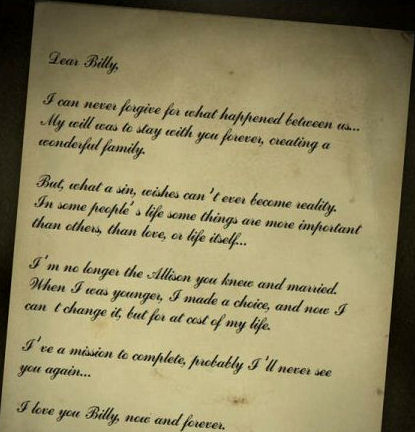 Dear Billy,
I can never forgive for what happened between us...
My will was to stay with you forever, creating a
wonderful family.
But, what a sin, wishes can't ever become reality.
In some people's life some things are more important
than others, than love, or life itself...
I'm no longer the Allison you knew and married.
When I was younger, I made a choice, and now I
can t change it, but for at cost of my life.
I've a mission to complete, probably I'll never see
you again...
I love you Billy, now and forever.